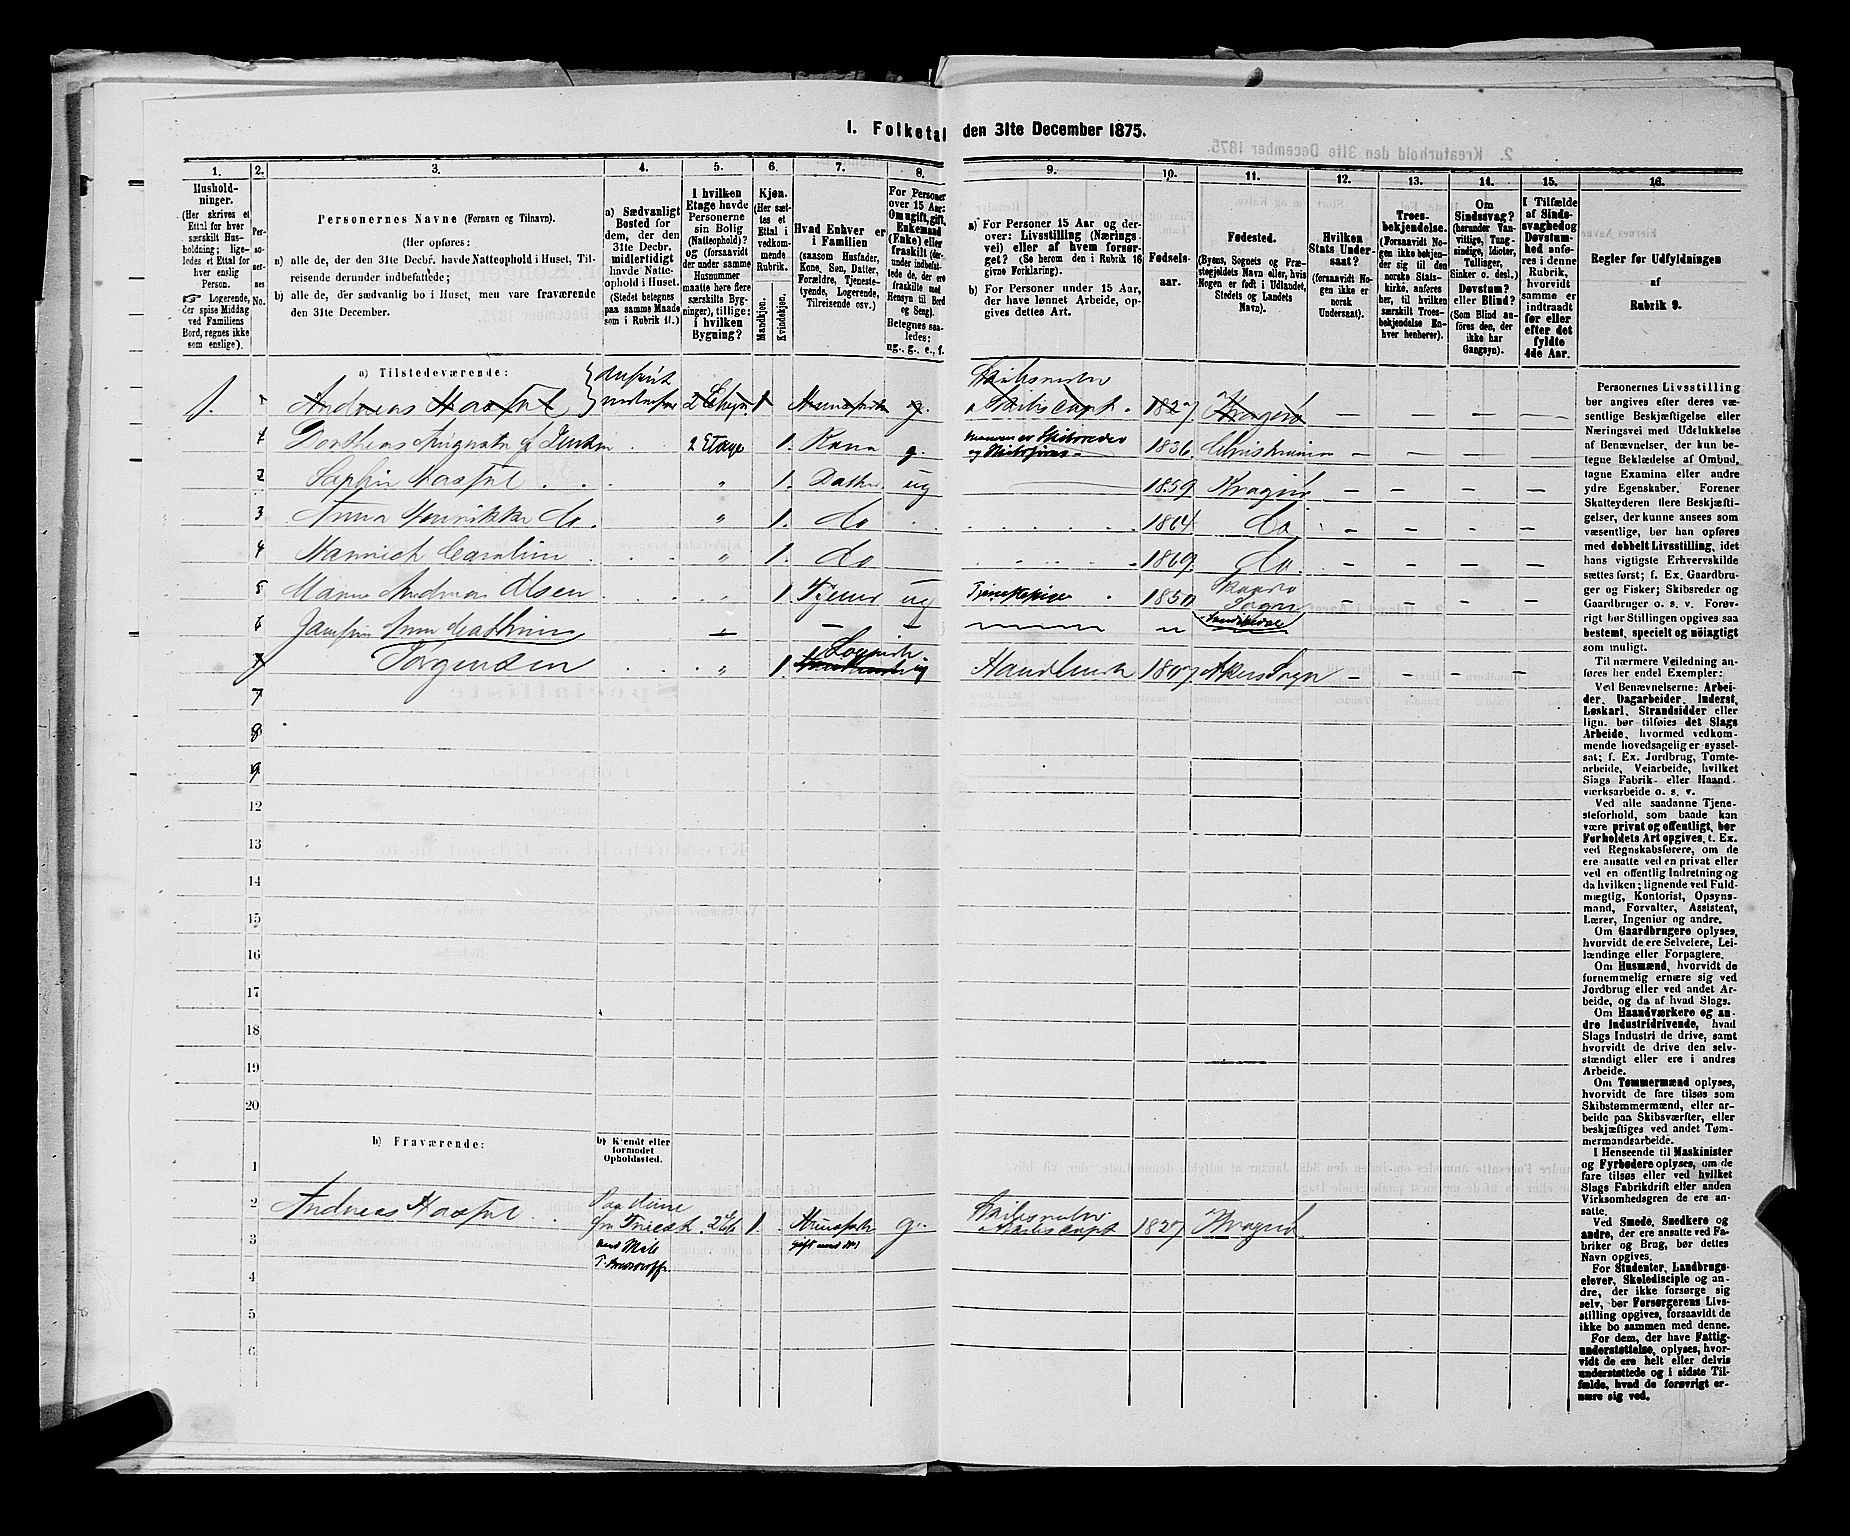 I. Folketal den 31te December 1875.
2. Kreaturhold den 31te December 1875.
1.
Hushold-
ninger.
(Her skrives et
Ettal for hver
særskilt Hus-
holdning; lige-
ledes et Ettal for
hver enslig
Person.
☞ Logerende,
der spise Middag
ved Familiens
Bord, regnes ikke
som enslige).
2.
Per-
so-
ner-
nes
No.
3.
Personernes Navne (Fornavn og Tilnavn).
(Her opføres:
a) alle de, der den 31te Decbr. havde Natteophold i Huset, Til-
reisende derunder indbefattede;
b) alle de, der sædvanlig bo i Huset, men vare fraværende
den 31te December.
4.
a) Sædvanligt
Bosted for
dem, der den
31te Decbr.
midlertidigt
havde Natte-
ophold i Huset.
(Stedet betegnes
paa samme Maade
som i Rubrik 11.)
5.
I hvilken
Etage havde
Personerne
sin Bolig
(Natteophold)?
og (forsaavidt
der under samme
Husnummer
maatte høre flere
særskilte Byg-
ninger), tillige:
i hvilken
Bygning?
6.
Kjøn.
(Her sæt-
tes et
Ettal i
vedkom-
mende
Rubrik.
Mandkjøn.
Kvindekjøn.
7.
Hvad Enhver er
i Familien
(saasom Husfader,
Kone, Søn, Datter,
Forældre, Tjeneste-
tyende, Logerende,
Tilreisende osv.)
8.
For Personer
over 15 Aar:
Om ugift, gift,
Enkemand
(Enke) eller
fraskilt (der-
under indbefat-
tede de, der ere
fraskilte med
Hensyn til Bord
og Seng).
Betegnes saa-
ledes:
ug., g., e., f.
9.
a) For Personer 15 Aar og der-
over: Livsstilling (Nærings-
vei) eller af hvem forsør-
get? (Se herom den i Rubrik 16
givne Forklaring).
b) For Personer under 15 Aar,
der have lønnet Arbeide, op-
gives dettes Art.
10.
Fødsels-
aar.
11.
Fødested.
(Byens, Sognets og Præ-
stegjeldets Navn eller, hvis
Nogen er født i Udlandet,
Stedets og Landets
Navn).
12.
Hvilken
Stats Under-
saat?
(forsaavidt No-
gen ikke er
norsk
Undersaat).
13.
Troes-
bekjendelse.
(Forsaavidt No-
gen ikke bekjen-
der sig til den
norske Stats-
kirke, anføres
her, til hvilken
særskilt Troes-
bekjendelse En-
hver henhører).
14.
Om
Sindssvag?
(herunder Van-
vittige, Tung-
sindige, Idioter,
Tullinger,
Sinker o. desl.)
Døvstum?
eller Blind?
(Som Blind an-
føres den, der
ikke har
Gangsyn).
15.
I Tilfælde
af Sinds-
svaghed og
Døvstum-
hed anfø-
res i denne
Rubrik,
hvorvidt
samme er
indtraadt
før eller
efter det
fyldte
4de Aar.
16.
Regler for Udfyldningen
af
Rubrik 9.
a) Tilstedeværende:
Skibsreder
1. Andreas Haasful 2 Etage 1 g. Skibscapt. 1827 Kragerø
1 Dorthea Augusta f Jensen 2 Etage 1. Kone g. Manden er Skibsreder og Skibsfører 1836. Christiania – – – –
2 Sophie Haasful " 1. Datter ug 1859 Kragerø – – – –
3 Anna Henrikke do. " 1. do 1864 do – – – –
4 Caroline " 1. do 1869. do. – – – –
5 Andrea Olsen " 1 Tjener ug Tjenestepige 1850 Skaadø Sogn – – – –
6 Anne Cathrine
Jørgensen " 1. Logerende ug 1807 Akers Sogn – – – –
7
8
9
12
13
14
15
16
17
18
19
20
b) Fraværende:
b) Kjendt eller
formodet
Opholdssted.
1
2 Andreas Haasful Paa Reise fra Triest 2 Et 1. g. Skibsreder Skibscapt 1827 Kragerø
3 gift med No 1
4
5
6
Personernes Livsstilling
bør angives efter deres væ-
sentlige Beskjæftigelse eller
Næringsvei med Udelukkelse
af Benævnelser, der kun be-
tegne Beklædelse af Ombud,
tagne Examina eller andre
ydre Egenskaber. Forener
Skatteyderen flere Beskjæfti-
gelser, der kunne ansees som
væsentlige, bør han opføres
med dobbelt Livsstilling, idet
hans vigtigste Erhvervskilde
sættes først; f. Ex. Gaardbru-
ger og Fisker; Skibsreder og
Gaardbruger o. s. v. Forøv-
rigt bør Stillingen opgives saa
bestemt, specielt og nøiagtigt
som muligt.
Til nærmere Veiledning an-
føres her endel Exempler:
Ved Benævnelserne: Arbei-
der, Dagarbeider, Inderst,
Løskarl, Strandsidder eller
lign. bør tilføies det Slags
Arbeide, hvormed vedkom-
mende hovedsagelig er syssel-
sat; f. Ex. Jordbrug, Tømte-
arbeide, Veiarbeide, hvilket
Slags Fabrik- eller Haand-
værksarbeide o. s. v.
Ved alle saadanne Tjene-
steforhold, som baade kan
være privat og offentligt, bør
Forholdets Art opgives, t. Ex.
ved Regnskabsførere, om de
ere ansatte ved en privat eller
ved en offentlig Indretning og
da hvilken; lignende ved Fuld-
mægtig, Kontorist, Opsyns-
mand, Forvalter, Assistent,
Lærer, Ingeniør og andre.
Om Gaardbrugere oplyses,
hvorvidt de ere Selveiere, Lei-
lændinge eller Forpagtere.
Om Husmænd, hvorvidt de
fornemmelig ernære sig ved
Jordbrug eller ved andet Ar-
beide, og da af hvad Slags.
Om Haandværkere og an-
dre Industridrivende, hvad
Slags Industri de drive, samt
hvorvidt de drive den selv-
stændigt eller ere i andres
Arbeide.
Om Tømmermænd oplyses,
hvorvidt de fare tilsøs som
Skibstømmermænd, eller ar-
beide paa Skibsværfter, eller
beskjæftiges ved andet Tøm-
mermandsarbeide.
I Henseende til Maskinister
og Fyrbødere oplyses, om de
fare tilsøs eller ved hvilket
Slags Fabrikdrift eller anden
Virksomhedsgren de ere an-
satte.
Ved Smede, Snedkere og
andre, der ere ansatte ved Fa-
briker og Brug, bør dettes
Navn opgives.
For Studenter, Landbrugs-
elever, Skoledisciple og an-
dre, der ikke forsørge sig
selv, bør Forsørgerens Livs-
stilling opgives, forsaavidt de
ikke bo sammen med denne.
For dem, der have Fattig-
understøttelse, oplyses, hvor-
vidt de ere helt eller delvis
understøttede og i sidste Til-
fælde, hvad de forøvrigt er-
nære sig ved.